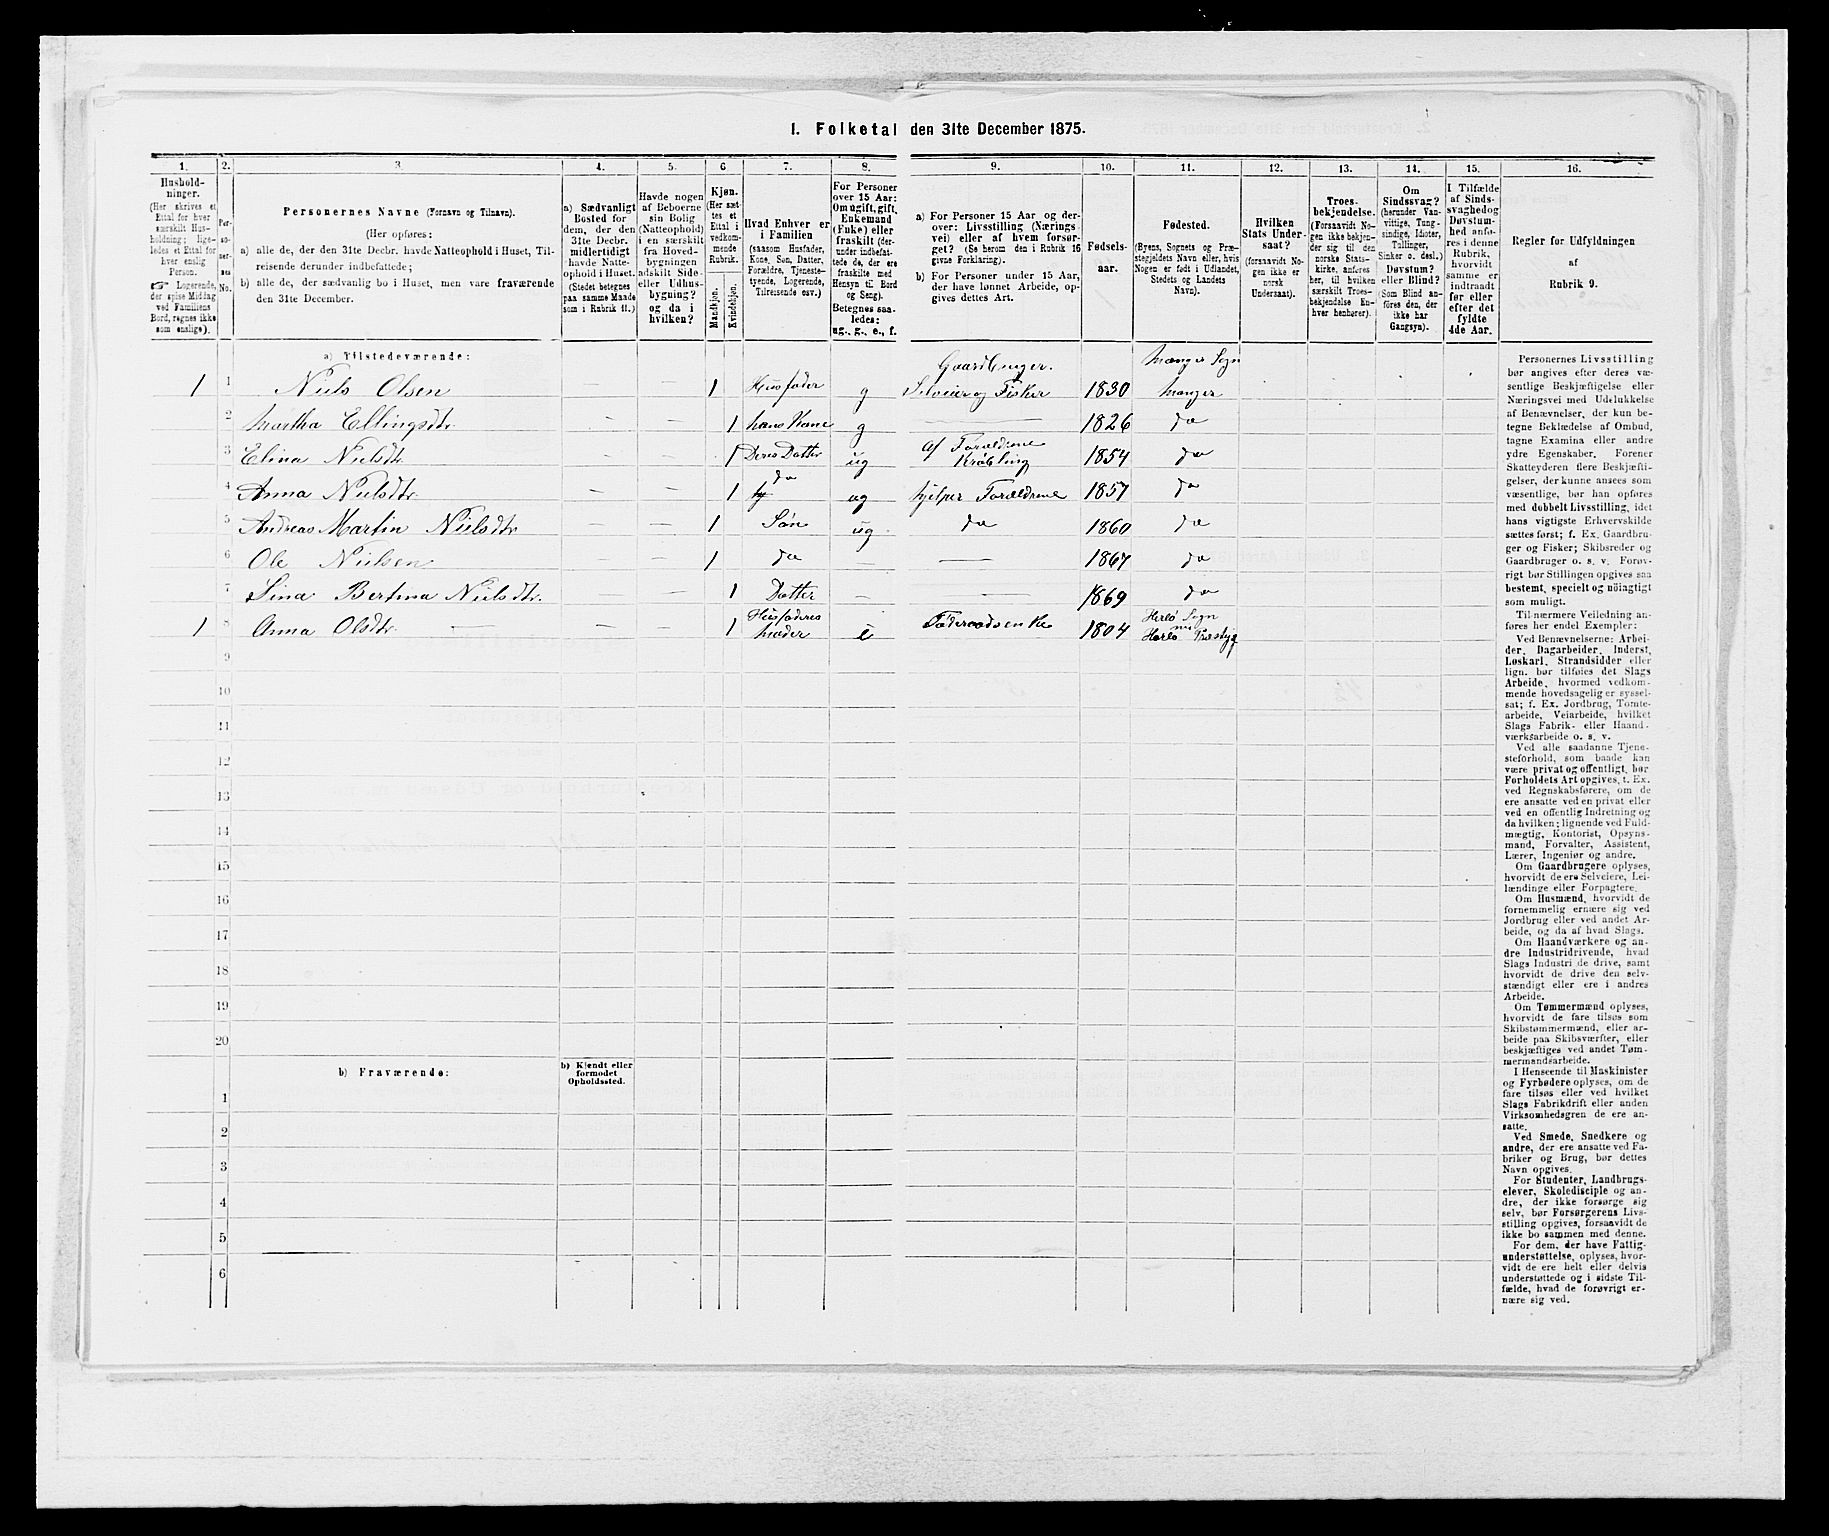 I. Folketal den 31te December 1875.
1. 2. 3. 4. 5. 6 7. 8. 9. 10. 11. 12. 13. 14. 15. 16.
Hushold-
ninger.
(Her skrives et
Ettal for hver
særskilt Hus-
holdning; lige-
ledes et Ettal for
hver enslig
Person.
☞ Logerende,
der spise Middag
ved Familiens
Bord, regnes ikke
som enslige).
Per-
so-
ner-
nes
No.
Personernes Navne (Fornavn og Tilnavn).
(Her opføres:
a) alle de, der den 31te Decbr. havde Natteophold i Huset, Til-
reisende derunder indbefattede;
b) alle de, der sædvanlig bo i Huset, men vare fraværende
den 31te December.
a) Sædvanligt
Bosted for
dem, der den
31te Decbr.
midlertidigt
havde Natte-
ophold i Huset.
(Stedet betegnes
paa samme Maade
som i Rubrik 11.)
Havde nogen
af Beboerne
sin Bolig
(Natteophold)
i en særskilt
fra Hoved-
bygningen
adskilt Side-
eller Udhus-
bygning?
og da i
hvilken?
Kjøn.
(Her sæt-
tes et
Ettal i
vedkom-
mende
Rubrik.
Mandkjøn.
Kvindekjøn.
Hvad Enhver er
i Familien
(saasom Husfader,
Kone, Søn, Datter,
Forældre, Tjeneste-
tyende, Logerende,
Tilreisende osv.)
For Personer
over 15 Aar:
Om ugift, gift,
Enkemand
(Enke) eller
fraskilt (der-
under indbefat-
tede de, der ere
fraskilte med
Hensyn til Bord
og Seng).
Betegnes saa-
ledes:
ug., g., e., f.
a) For Personer 15 Aar og der-
over: Livsstilling (Nærings-
vei) eller af hvem forsør-
get? (Se herom den i Rubrik 16
givne Forklaring).
b) For Personer under 15 Aar,
der have lønnet Arbeide, op-
gives dettes Art.
Fødsels-
aar.
Fødested.
(Byens, Sognets og Præ-
stegjeldets Navn eller, hvis
Nogen er født i Udlandet,
Stedets og Landets
Navn).
Hvilken
Stats Under-
saat?
(forsaavidt No-
gen ikke er
norsk
Undersaat).
Troes-
bekjendelse.
(Forsaavidt No-
gen ikke bekjen-
der sig til den
norske Stats-
kirke, anføres
her, til hvilken
særskilt Troes-
bekjendelse En-
hver henhører).
Om
Sindssvag?
(herunder Van-
vittige, Tung-
sindige, Idioter,
Tullinger,
Sinker o. desl.)
Døvstum?
eller Blind?
(Som Blind an-
føres den, der
ikke har
Gangsyn).
I Tilfælde
af Sinds-
svaghed og
Døvstum-
hed anfø-
res i denne
Rubrik,
hvorvidt
samme er
indtraadt
før eller
efter det
fyldte
4de Aar.
Regler for Udfyldningen
af
Rubrik 9.
a) Tilstedeværende:
Gaardbruger. Manger Sogn
1 1 Niels Olsen — — 1 Husfader g Selveier og Fisker 1830 Manger
2 Martha Ellingsdtr. — — 1 hans Kone g — 1826 da
3 Elina Nielsdtr. — — 1 Deres Datter ug af Forældrene Krøbling 1854 da
4 Anna Nielsdtr. — — 1 da ug hjelper Forældrene 1857 da
5 Andreas Martin Nielsdtr — — 1 Søn ug da 1860 da
6 Ole Nielsen — — 1 da — — 1867 da
7 Sina Bertina Nielsdtr. — — 1 Datter — — 1869 da
1 8 Anna Olsdtr. — — — 1 Husfaderes Moder e Føderaadsenke 1804 Herlø Sogn Herlø Præstegj
9
10
11
12
13
14
15
16
17
18
19
20
b) Fraværende:
b) Kjendt eller
formodet
Opholdssted.
1
2
3
4
5
6
Personernes Livsstilling
bør angives efter deres væ-
sentlige Beskjæftigelse eller
Næringsvei med Udelukkelse
af Benævnelser, der kun be-
tegne Beklædelse af Ombud,
tagne Examina eller andre
ydre Egenskaber. Forener
Skatteyderen flere Beskjæfti-
gelser, der kunne ansees som
væsentlige, bør han opføres
med dobbelt Livsstilling, idet
hans vigtigste Erhvervskilde
sættes først; f. Ex. Gaardbru-
ger og Fisker; Skibsreder og
Gaardbruger o. s. v. Forøv-
rigt bør Stillingen opgives saa
bestemt, specielt og nøiagtigt
som muligt.
Til nærmere Veiledning an-
føres her endel Exempler:
Ved Benævnelserne: Arbei-
der, Dagarbeider, Inderst,
Løskarl, Strandsidder eller
lign. bør tilføies det Slags
Arbeide, hvormed vedkom-
mende hovedsagelig er syssel-
sat; f. Ex. Jordbrug, Tomte-
arbeide, Veiarbeide, hvilket
Slags Fabrik- eller Haand-
værksarbeide o. s. v.
Ved alle saadanne Tjene-
steforhold, som baade kan
være privat og offentligt, bør
Forholdets Art opgives, t. Ex.
ved Regnskabsførere, om de
ere ansatte ved en privat eller
ved en offentlig Indretning og
da hvilken; lignende ved Fuld-
mægtig, Kontorist, Opsyns-
mand, Forvalter, Assistent,
Lærer, Ingeniør og andre.
Om Gaardbrugere oplyses,
hvorvidt de ere Selveiere, Lei-
lændinge eller Forpagtere.
Om Husmænd, hvorvidt de
fornemmelig ernære sig ved
Jordbrug eller ved andet Ar-
beide, og da af hvad Slags.
Om Haandværkere og an-
dre Industridrivende, hvad
Slags Industri de drive, samt
hvorvidt de drive den selv-
stændigt eller ere i andres
Arbeide.
Om Tømmermænd oplyses,
hvorvidt de fare tilsøs som
Skibstømmermænd, eller ar-
beide paa Skibsværfter, eller
beskjæftiges ved andet Tøm-
mermandsarbeide.
I Henseende til Maskinister
og Fyrbødere oplyses, om de
fare tilsøs eller ved hvilket
Slags Fabrikdrift eller anden
Virksomhedsgren de ere an-
satte.
Ved Smede, Snedkere og
andre, der ere ansatte ved Fa-
briker og Brug, bør dettes
Navn opgives.
For Studenter, Landbrugs-
elever, Skoledisciple og an-
dre, der ikke forsørge sig
selv, bør Forsørgerens Livs-
stilling opgives, forsaavidt de
ikke bo sammen med denne.
For dem, der have Fattig-
understøttelse, oplyses, hvor-
vidt de ere helt eller delvis
understøttede og i sidste Til-
fælde, hvad de forøvrigt er-
nære sig ved.